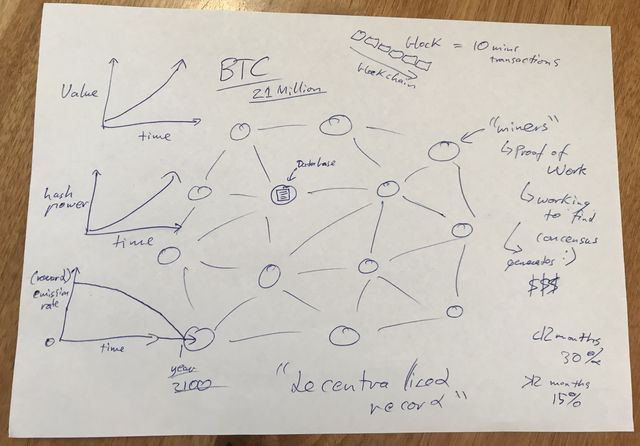 block = 10 mins
transactions
blockchain
BTC
21 Million
Value
time
"miners"
↳ Proof of
Work
↳ working
to find
concensus
↳ generates :)
$$$
Database
hash
power
time
(reward)
emission
rate
0
time
year
"decentralised
record"
<12 months
30%
>12 months
15%